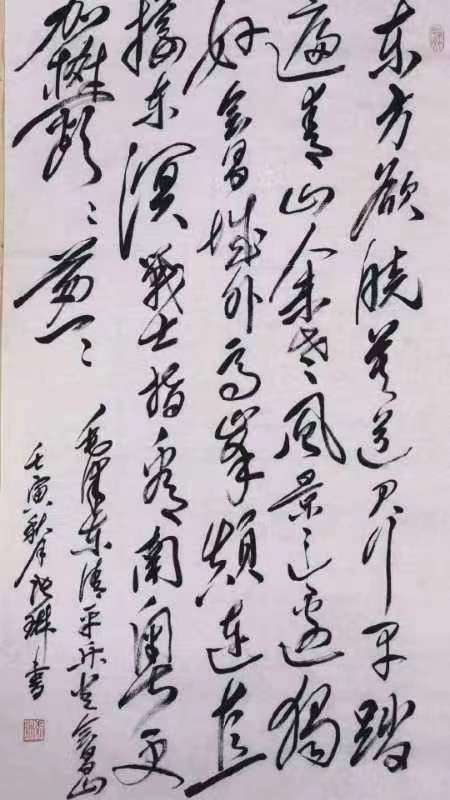 东方欲晓莫道君行早踏
遍青山人未老風景这边独
好会昌城外高峯颠连直
接东溟战士指看南粤更
加鬱〻葱〻
毛泽东清平乐登会昌山
壬寅秋月琳书